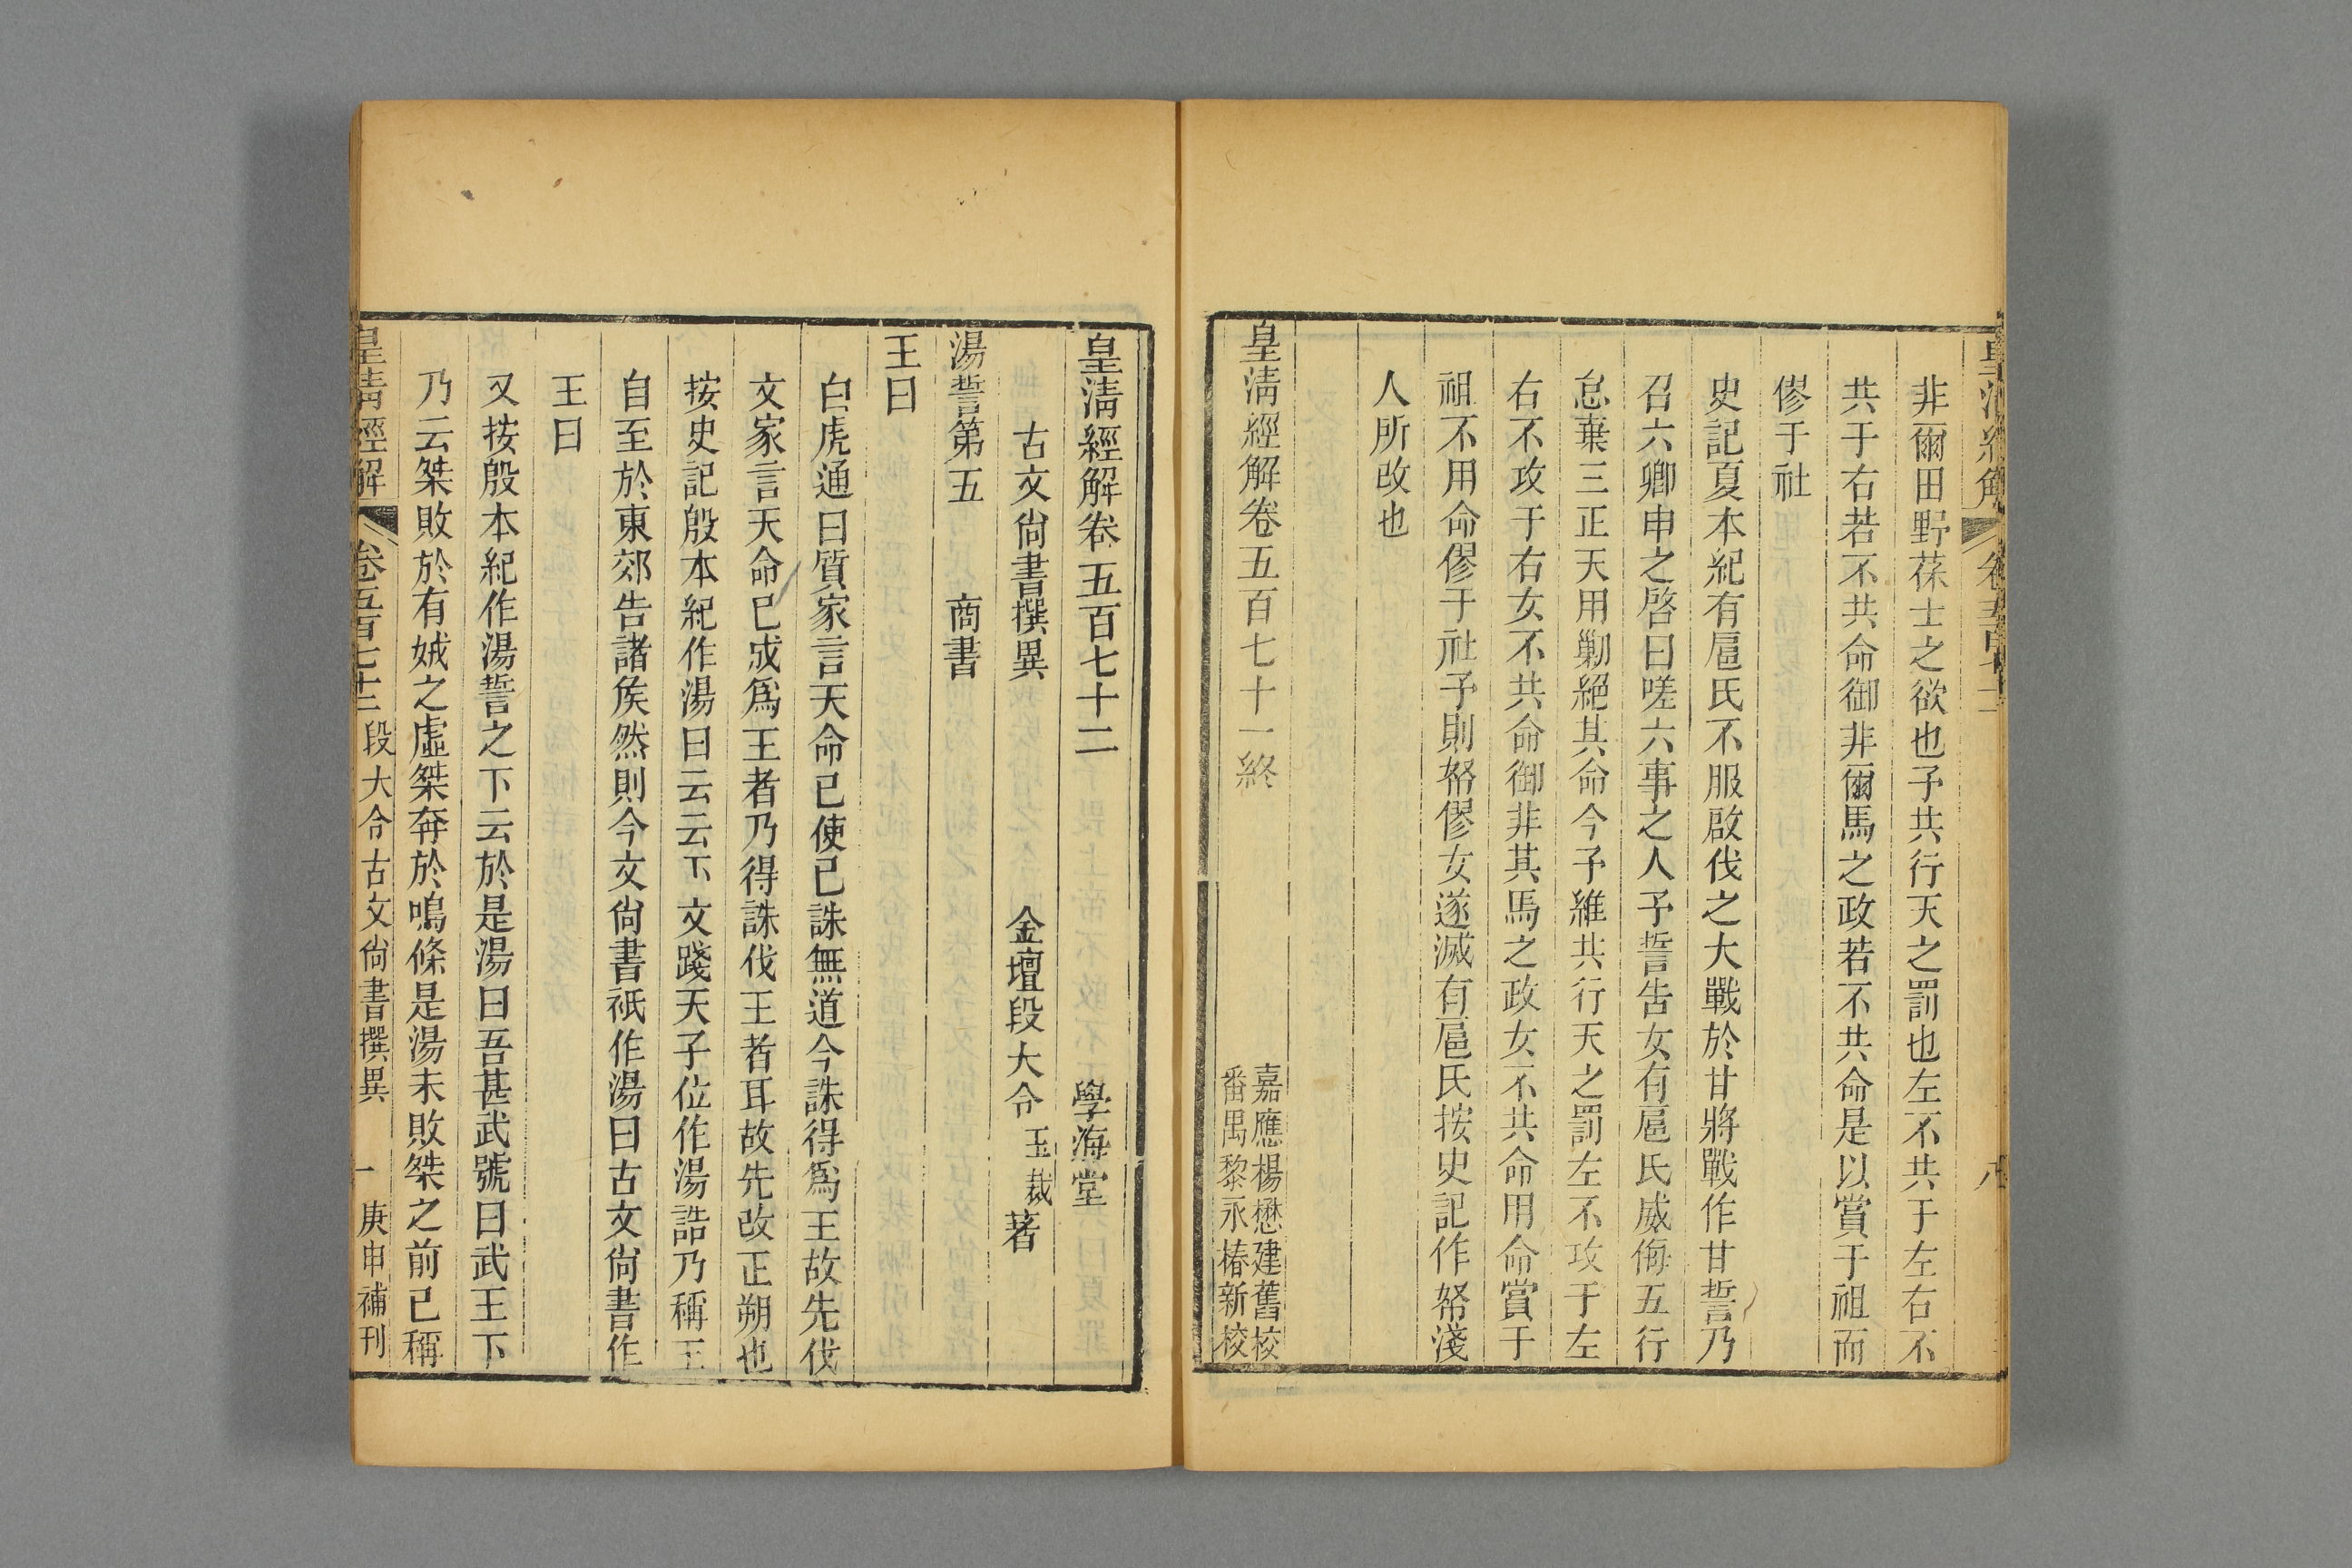 非爾田野葆士之欲也予共行天之罰也左不共于左右不
共于右若不共命御非爾馬之政若不共命是以賞于祖而
僇于社
史記夏本紀有扈氏不服啟伐之大戰於甘將戰作甘誓乃
召六卿申之啓曰嗟六事之人予誓告女有扈氏威侮五行
怠棄三正天用勦絕其命今予維共行天之罰左不攻于左
右不攻于右女不共命御非其馬之政女不共命用命賞于
祖不用命僇于社予則帑僇女遂滅有扈氏按史記作帑淺
人所改也
皇清經解卷五百七十一終
嘉應楊懋建舊校
番禺黎永椿新校
皇清經解卷五百七十二
學海堂
古文尙書撰異
金壇段大令玉裁著
湯誓第五
商書
王曰
白虎通曰質家言天命已使已誅無道今誅得爲王故先伐
文家言天命已成爲王者乃得誅伐王者耳故先改正朔也
按史記殷本紀作湯曰云云下文踐天子位作湯誥乃稱王
自至於東郊告諸侯然則今文尙書祇作湯曰古文尙書作
王曰
又按殷本紀作湯誓之下云於是湯曰吾甚武號曰武王下
乃云桀敗於有娀之虛桀奔於鳴條是湯未敗桀之前已稱
皇清經解
卷五百七十二
段大令古文尙書撰異
一
庚申補刊